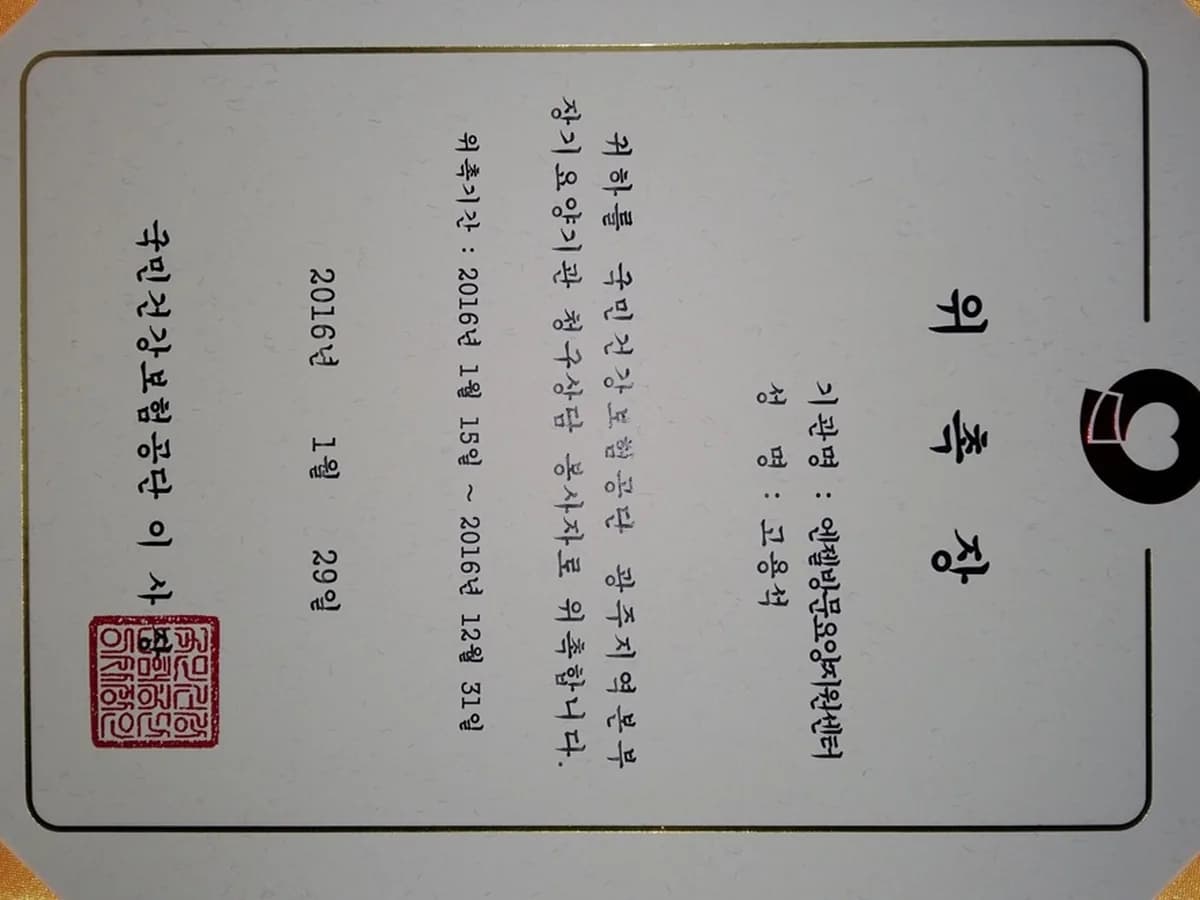 위 촉 장
기관명 : 엔젤방문요양지원센터
성 명 : 고용석
귀하를 국민건강보험공단 광주지역본부
장기요양기관 청구상담 봉사자로 위촉합니다.
위촉기간 : 2016년 1월 15일 ~ 2016년 12월 31일
2016년 1월 29일
국민건강보험공단 이 사 장